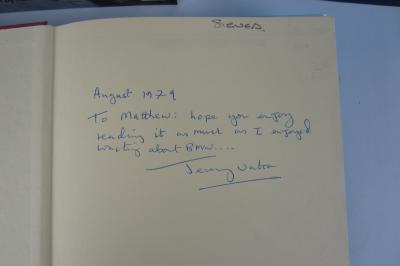 SIGNED.
August 1979
To Matthew: hope you enjoy
reading it as much as I enjoyed
writing about BMW....
Jeremy Walton